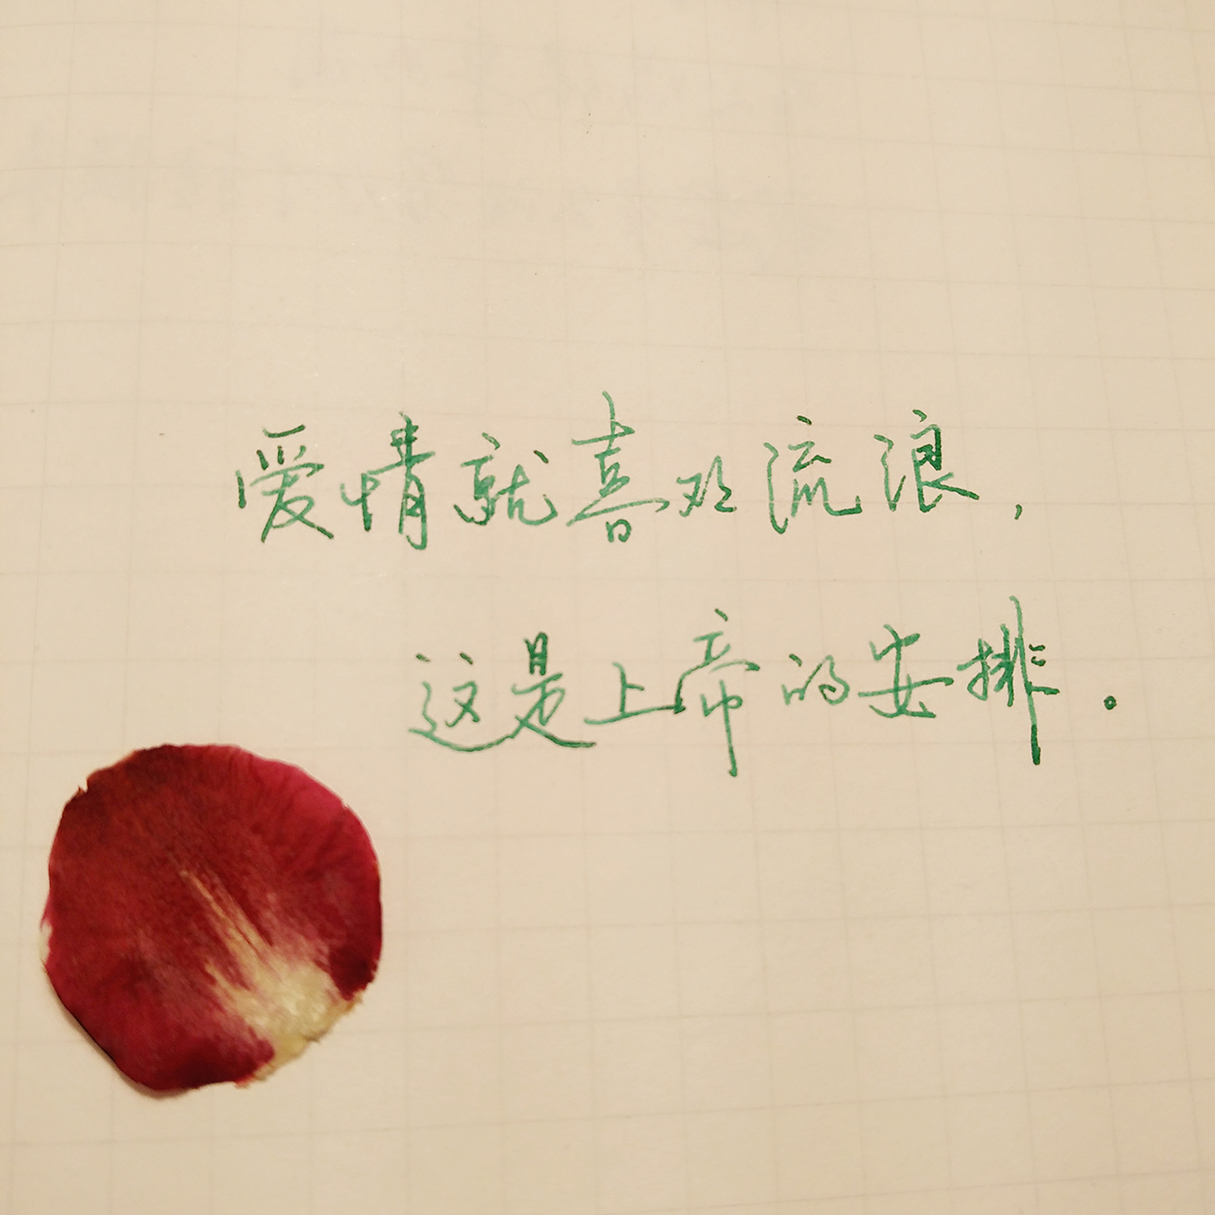 爱情就喜欢流浪，
这是上帝的安排。